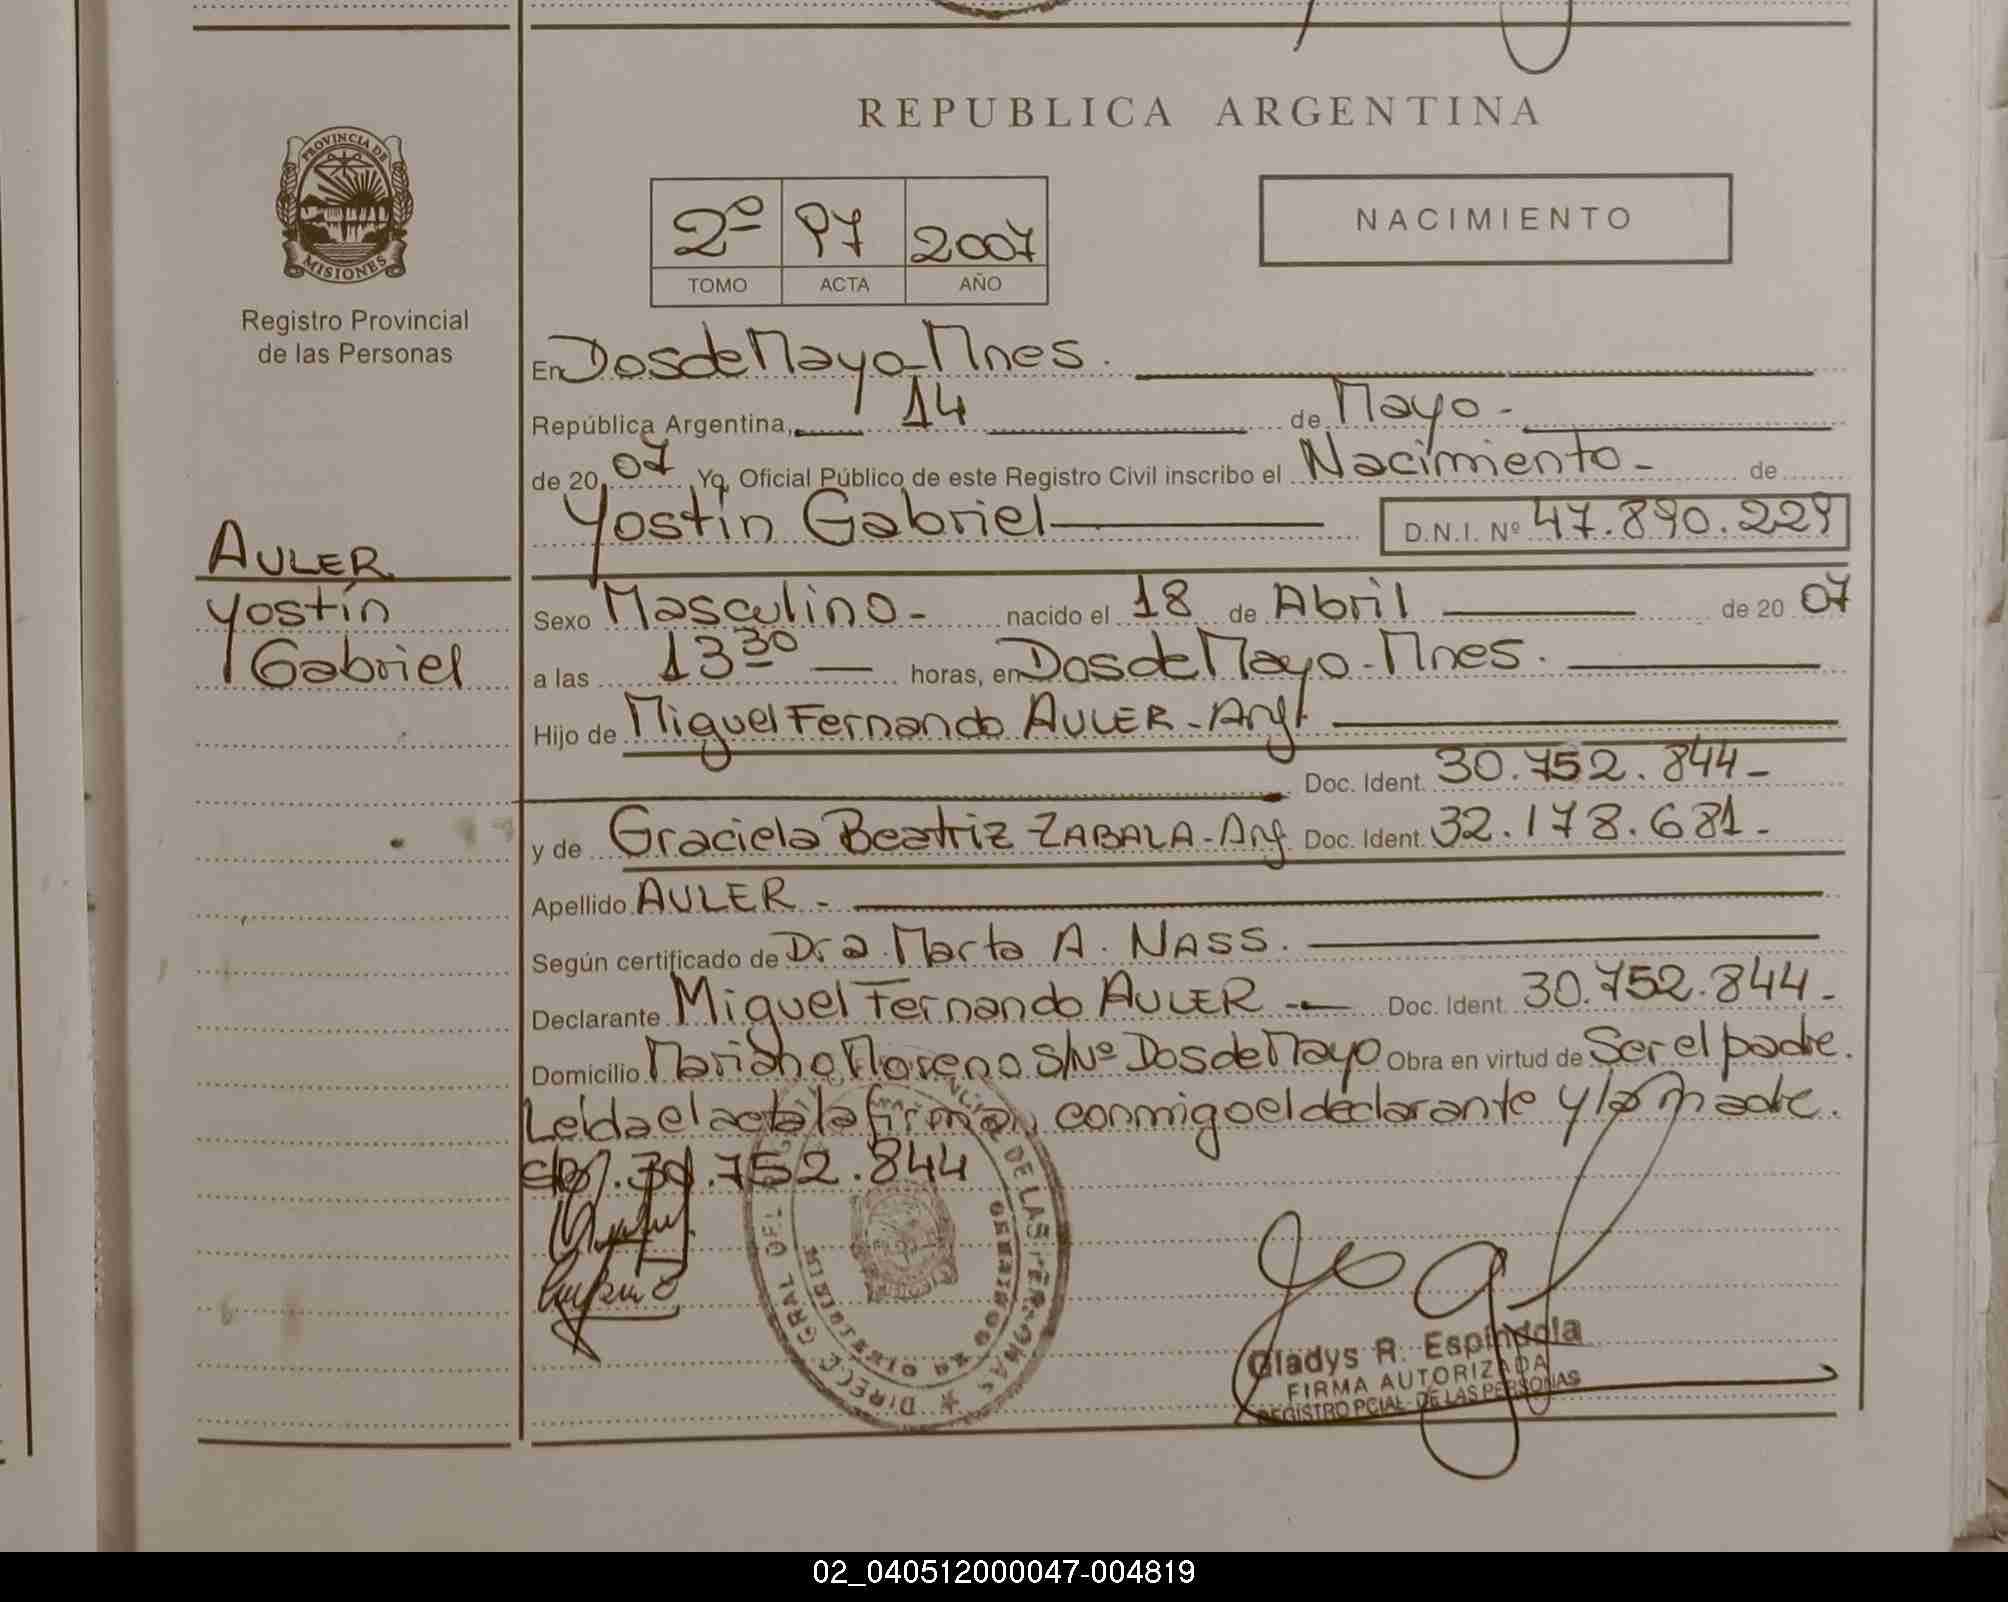 REPUBLICA ARGENTINA
PROVINCIA DE
MISIONES
Registro Provincial
de las Personas
2º 97 2007
TOMO ACTA AÑO
NACIMIENTO
En Dos de Mayo - Mnes.
República Argentina, 14 de Mayo -
de 20 07 Yo, Oficial Público de este Registro Civil inscribo el Nacimiento - de
Yostin Gabriel D.N.I. Nº 47.890.229
AULER
Yostín
Gabriel
Sexo Masculino - nacido el 18 de Abril de 20 07
a las 13 30 horas, en Dos de Mayo - Mnes.
Hijo de Miguel Fernando AULER - Arg.
Doc. Ident. 30.752.844 -
y de Graciela Beatriz ZABALA - Arg. Doc. Ident. 32.178.681 -
Apellido AULER -
Según certificado de Dra. Marta A. NASS.
Declarante Miguel Fernando AULER - Doc. Ident. 30.752.844 -
Domicilio Mariano Moreno S/Nº Dos de Mayo Obra en virtud de Ser el padre.
Leída el acta la firman conmigo el declarante y la madre.
30.752.844
DIRECC. GRAL DEL DE LAS PERSONAS
Gladys R. Espíndola
FIRMA AUTORIZADA
REGISTRO PCIAL. DE LAS PERSONAS
02_040512000047-004819